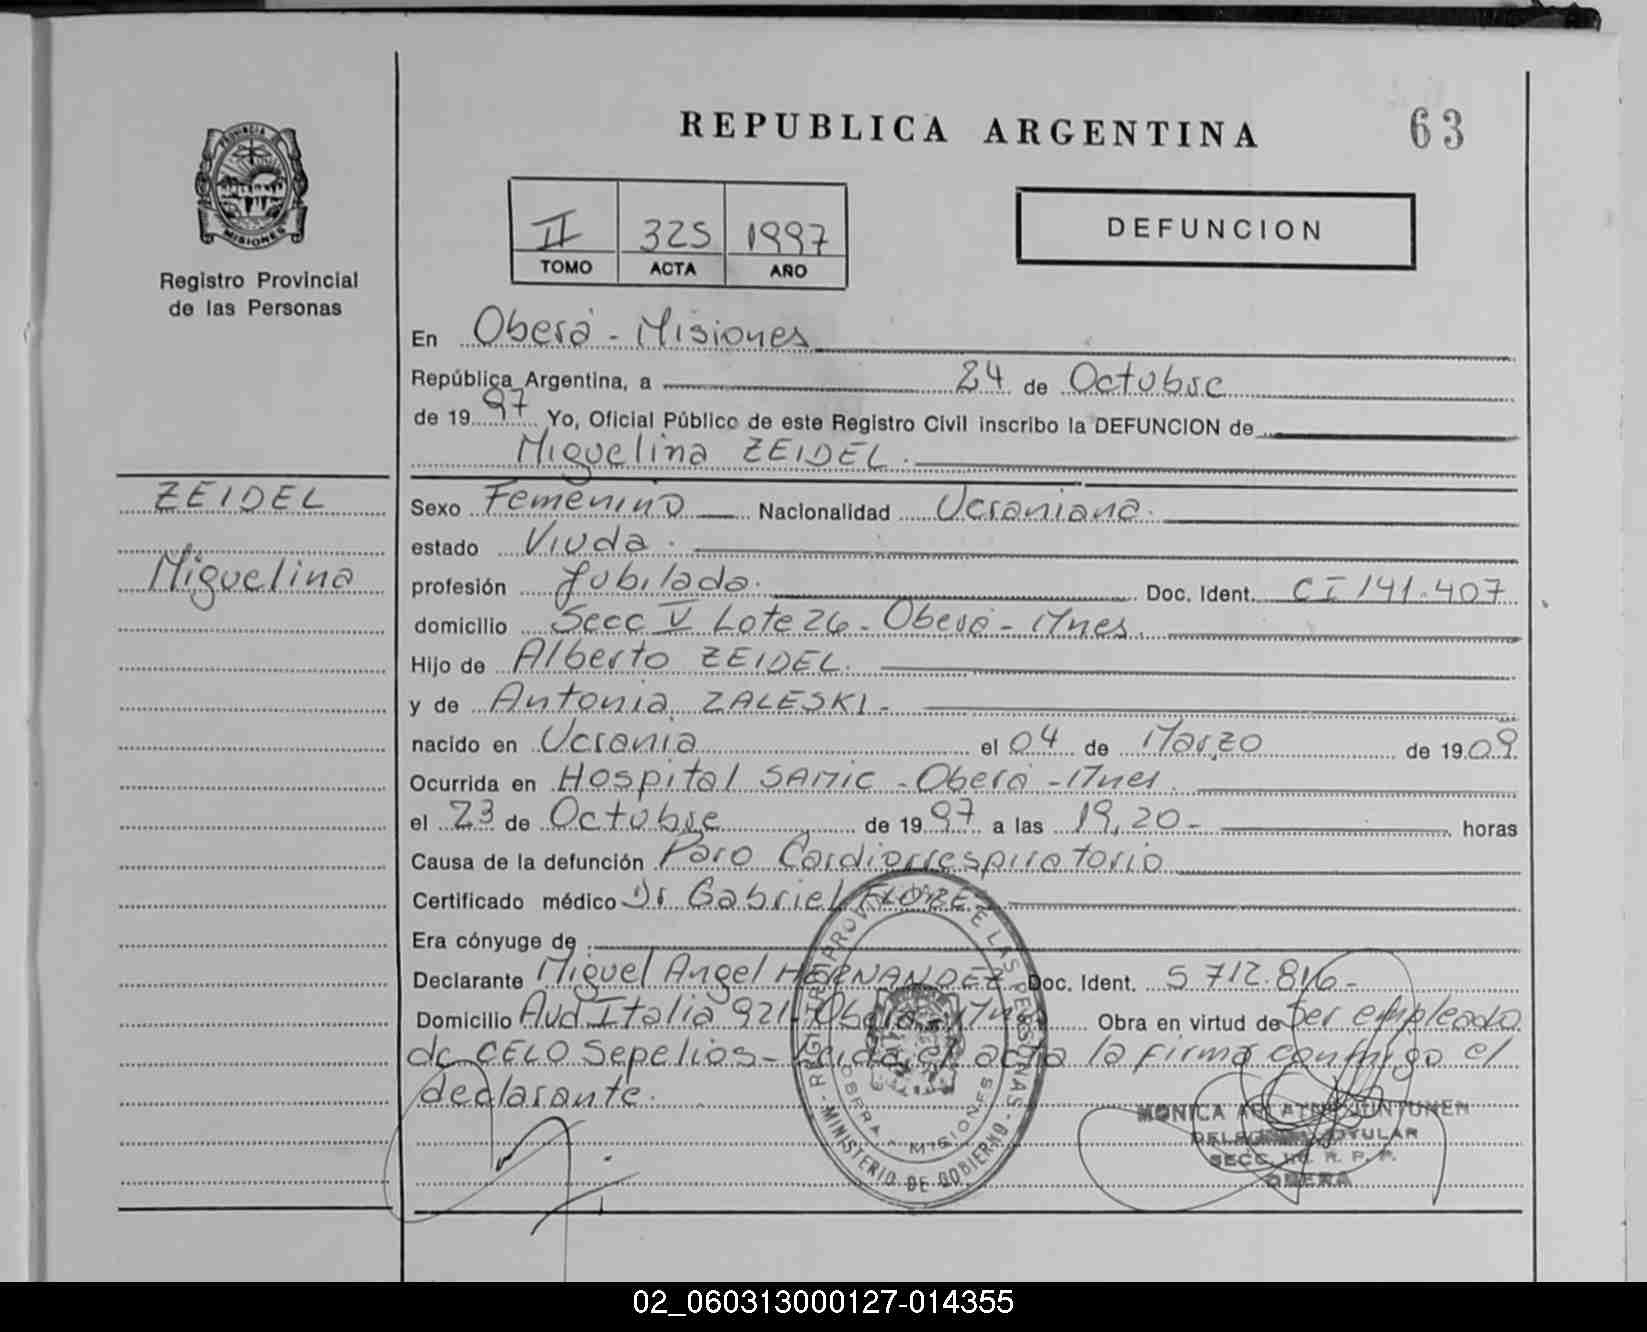 REPUBLICA ARGENTINA
63
PROVINCIA DE
MISIONES
Registro Provincial
de las Personas
II 325 1997
TOMO ACTA AÑO
DEFUNCION
En Oberá - Misiones
República Argentina, a 24 de Octubre
de 1997 Yo, Oficial Público de este Registro Civil inscribo la DEFUNCION de
Miguelina ZEIDEL.
ZEIDEL
Miguelina
Sexo Femenino Nacionalidad Ucraniana.
estado Viuda.
profesión Jubilada. Doc. Ident. CI 141.407
domicilio Secc V Lote 26 - Oberá - Mnes.
Hijo de Alberto ZEIDEL.
y de Antonia ZALESKI -
nacido en Ucrania el 04 de Marzo de 1909.
Ocurrida en Hospital SAMIC - Oberá - Mnes.
el 23 de Octubre de 1997 a las 19,20 - horas
Causa de la defunción Paro Cardiorrespiratorio
Certificado médico Dr Gabriel
Era cónyuge de
Declarante Miguel Angel HERNANDEZ Doc. Ident. 5 712.816 -
Domicilio Avd Italia 921 - Oberá - Mnes Obra en virtud de Ser empleado
de CELO Sepelios - Leída el acta la firma conmigo el
declarante.
REGISTRO PROVINCIAL DE LAS PERSONAS - MINISTERIO DE GOBIERNO -
OBERA - MISIONES
MONICA JUNTUNEN
DELEGADA TITULAR
SECC. R. P. P.
OBERA
02_060313000127-014355